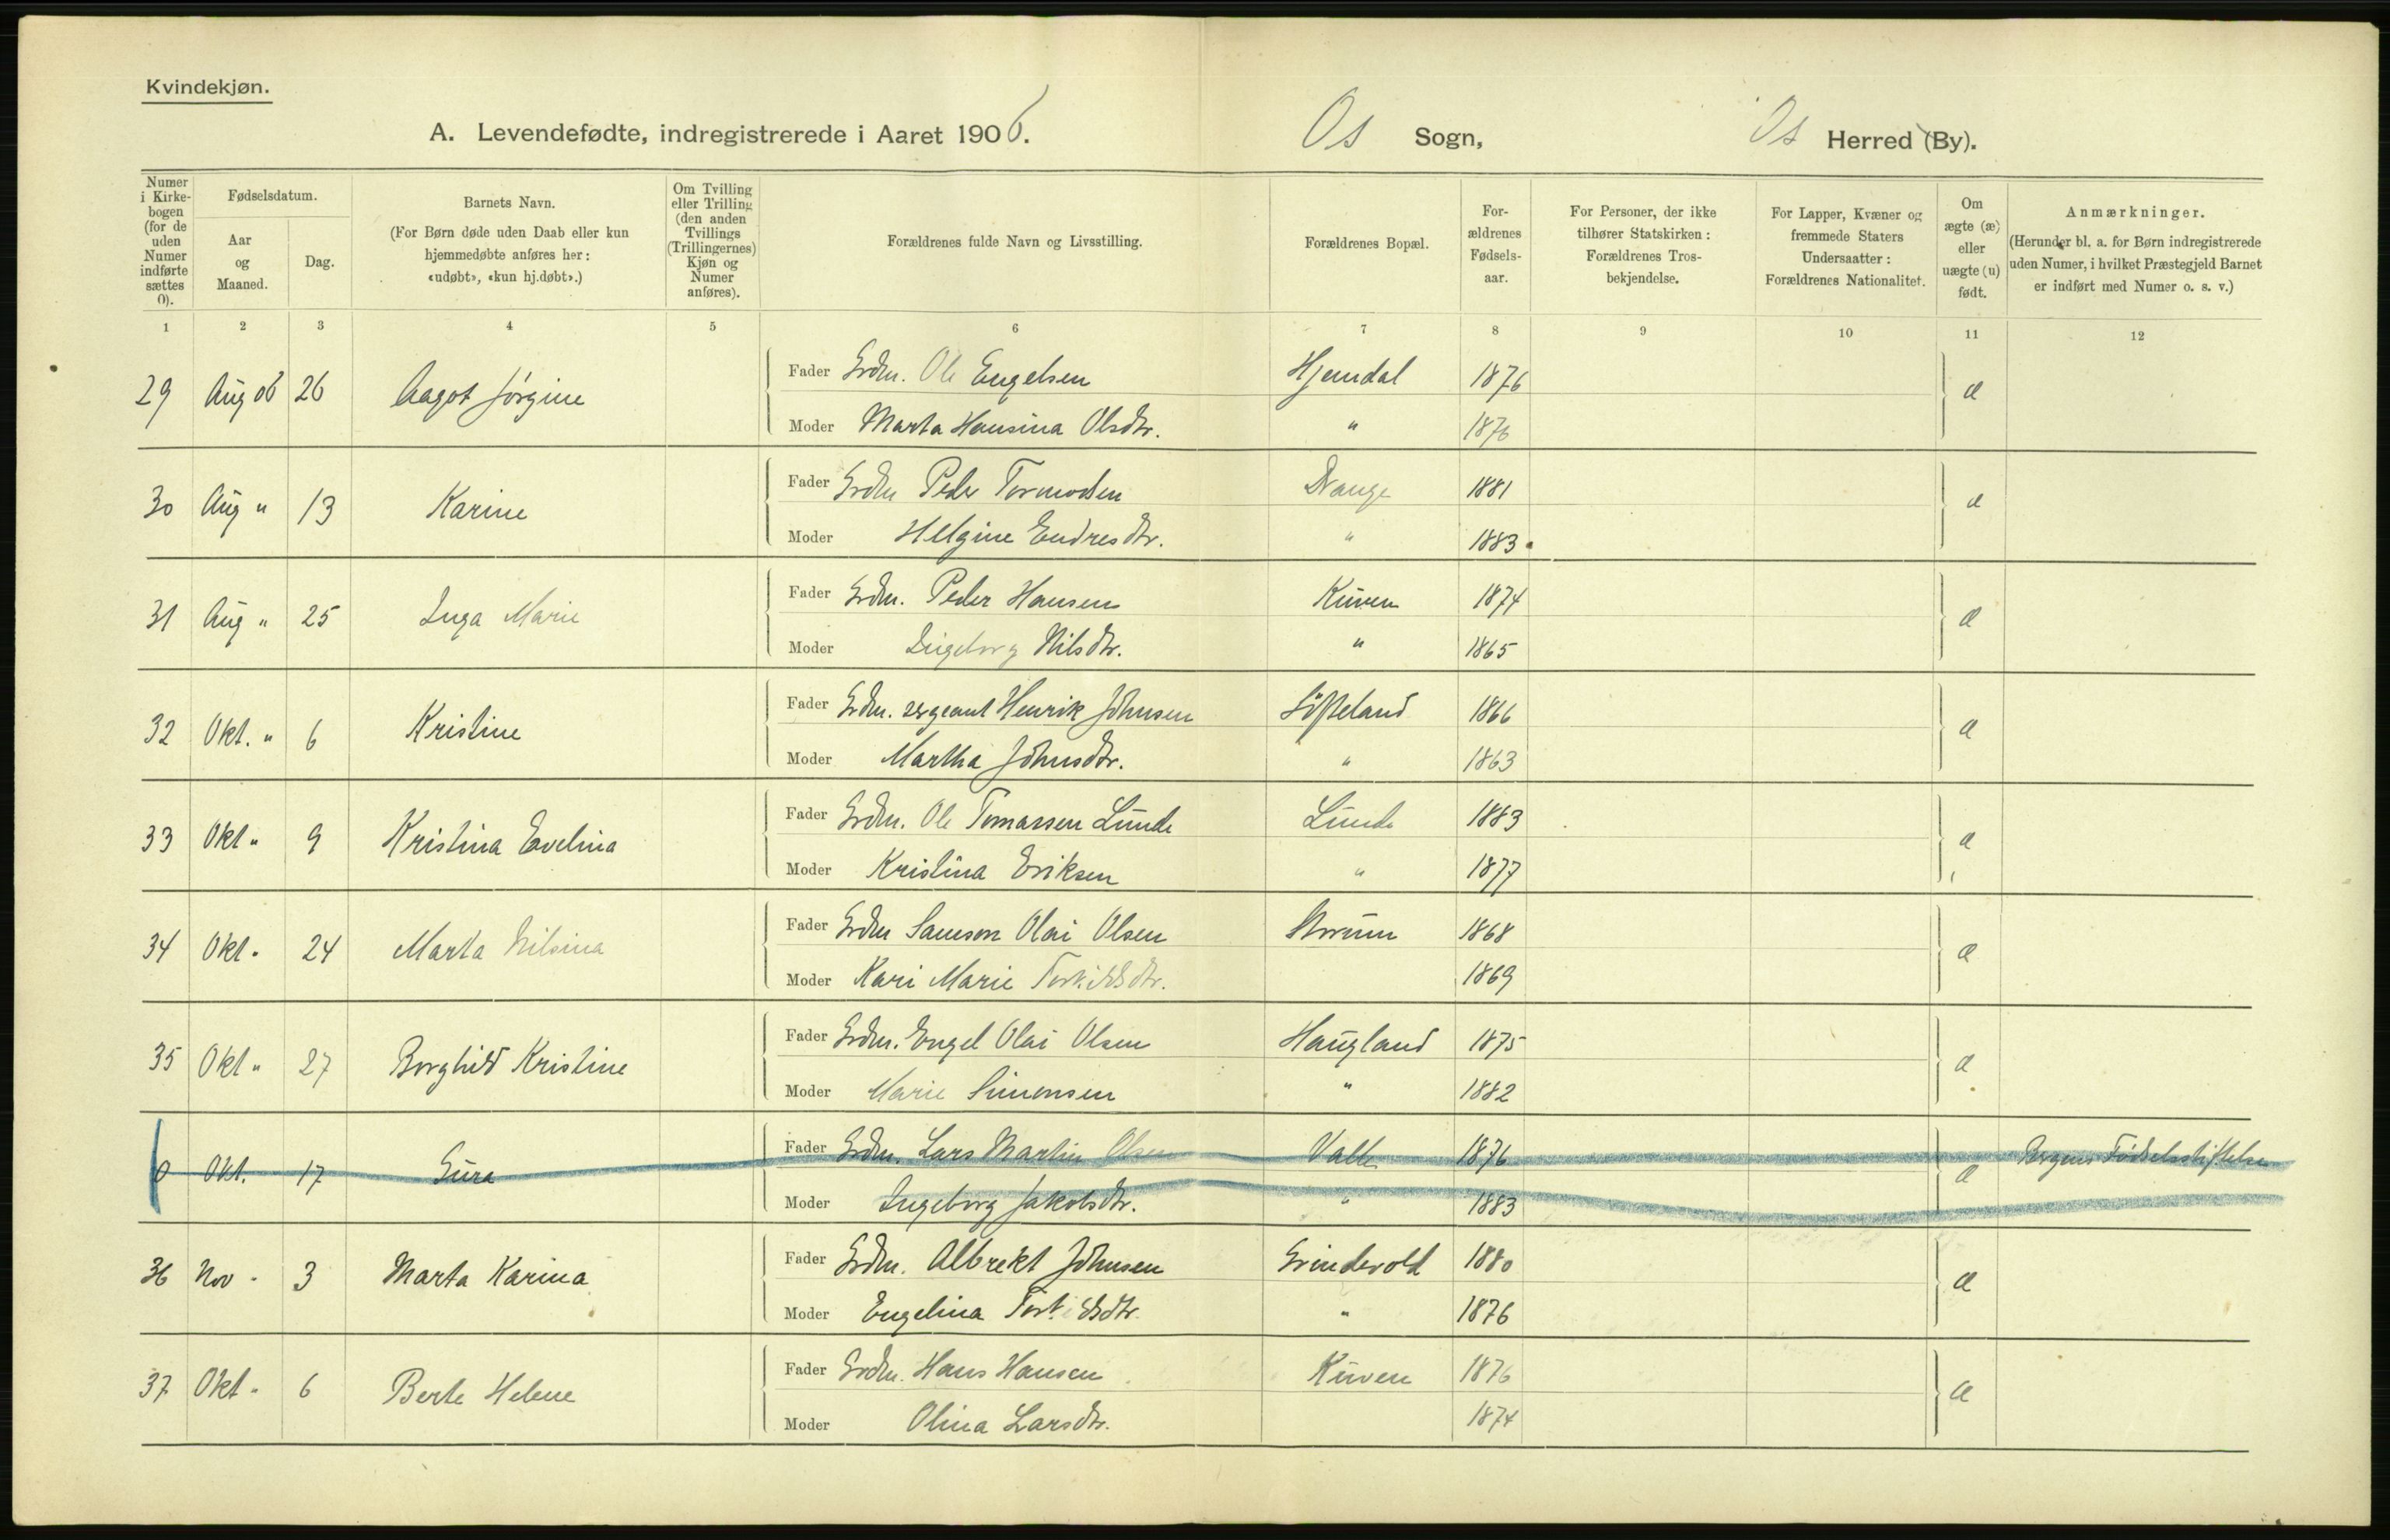 Kvindekjøn.
A. Levendefødte, indregistrerede i Aaret 1906.
Os Sogn,
Os Herred (By).
Numer i Kirkebogen (for de uden Numer indførte sættes 0).
Fødselsdatum.
Aar og Maaned.
Dag.
Barnets Navn.
(For Børn døde uden Daab eller kun hjemmedøbte anføres her: «udøbt», «kun hj.døbt».)
Om Tvilling eller Trilling (den anden Tvillings (Trillingernes) Kjøn og Numer anføres).
Forældrenes fulde Navn og Livsstilling.
Forældrenes Bopæl.
Forældrenes Fødselsaar.
For Personer, der ikke tilhører Statskirken: Forældrenes Trosbekjendelse.
For Lapper, Kvæner og fremmede Staters Undersaatter: Forældrenes Nationalitet.
Om ægte (æ) eller uægte (u) født.
Anmærkninger.
(Herunder bl. a. for Børn indregistrerede uden Numer, i hvilket Præstegjeld Barnet er indført med Numer o. s. v.)
1 2 3 4 5 6 7 8 9 10 11 12
29 Aug 06 26 Aagot Jørgine Fader Grdbr. Ole Engelsen Hjemdal 1876 æ
Moder Marta Hansina Olsdtr. " 1876
30 Aug " 13 Karine Fader Grdbr Peder Tormodsen Drange 1881 æ
Moder Helgine Endresdtr. " 1883
31 Aug " 25 Inga Marie Fader Grdbr. Peder Hansen Kuven 1874 æ
Moder Ingeborg Nilsdtr. " 1865
32 Okt. " 6 Kristine Fader Grdbr. sergeant Henrik Johnsen Søfteland 1866 æ
Moder Martha Johnsdtr. " 1863
33 Okt " 9 Kristina Evelina Fader Grdbr. Ole Tomassen Lunde Lunde 1883 æ
Moder Kristina Eriksen " 1877
34 Okt " 24 Marta Nilsina Fader Grdbr Samson Olai Olsen 1868 æ
Moder Kari Marie Torkildsdtr. 1869
35 Okt " 27 Borghild Kristine Fader Grdbr. Engel Olai Olsen Haugland 1875 æ
Moder Marie Simonsen " 1882
0 Okt. 17 Gura Fader Grdbr. Lars Martin Olsen Valle 1876 æ Bergens Fødselsstiftelse
Moder Ingeborg Jakobsdtr. " 1883
36 Nov " 3 Marta Karina Fader Grdbr. Albrekt Johnsen Grindevold 1880 æ
Moder Engelina Torkildsdtr " 1876
37 Okt " 6 Berte Helene Fader Grdbr. Hans Hansen Kuven 1876 æ
Moder Olina Larsdtr. 1874